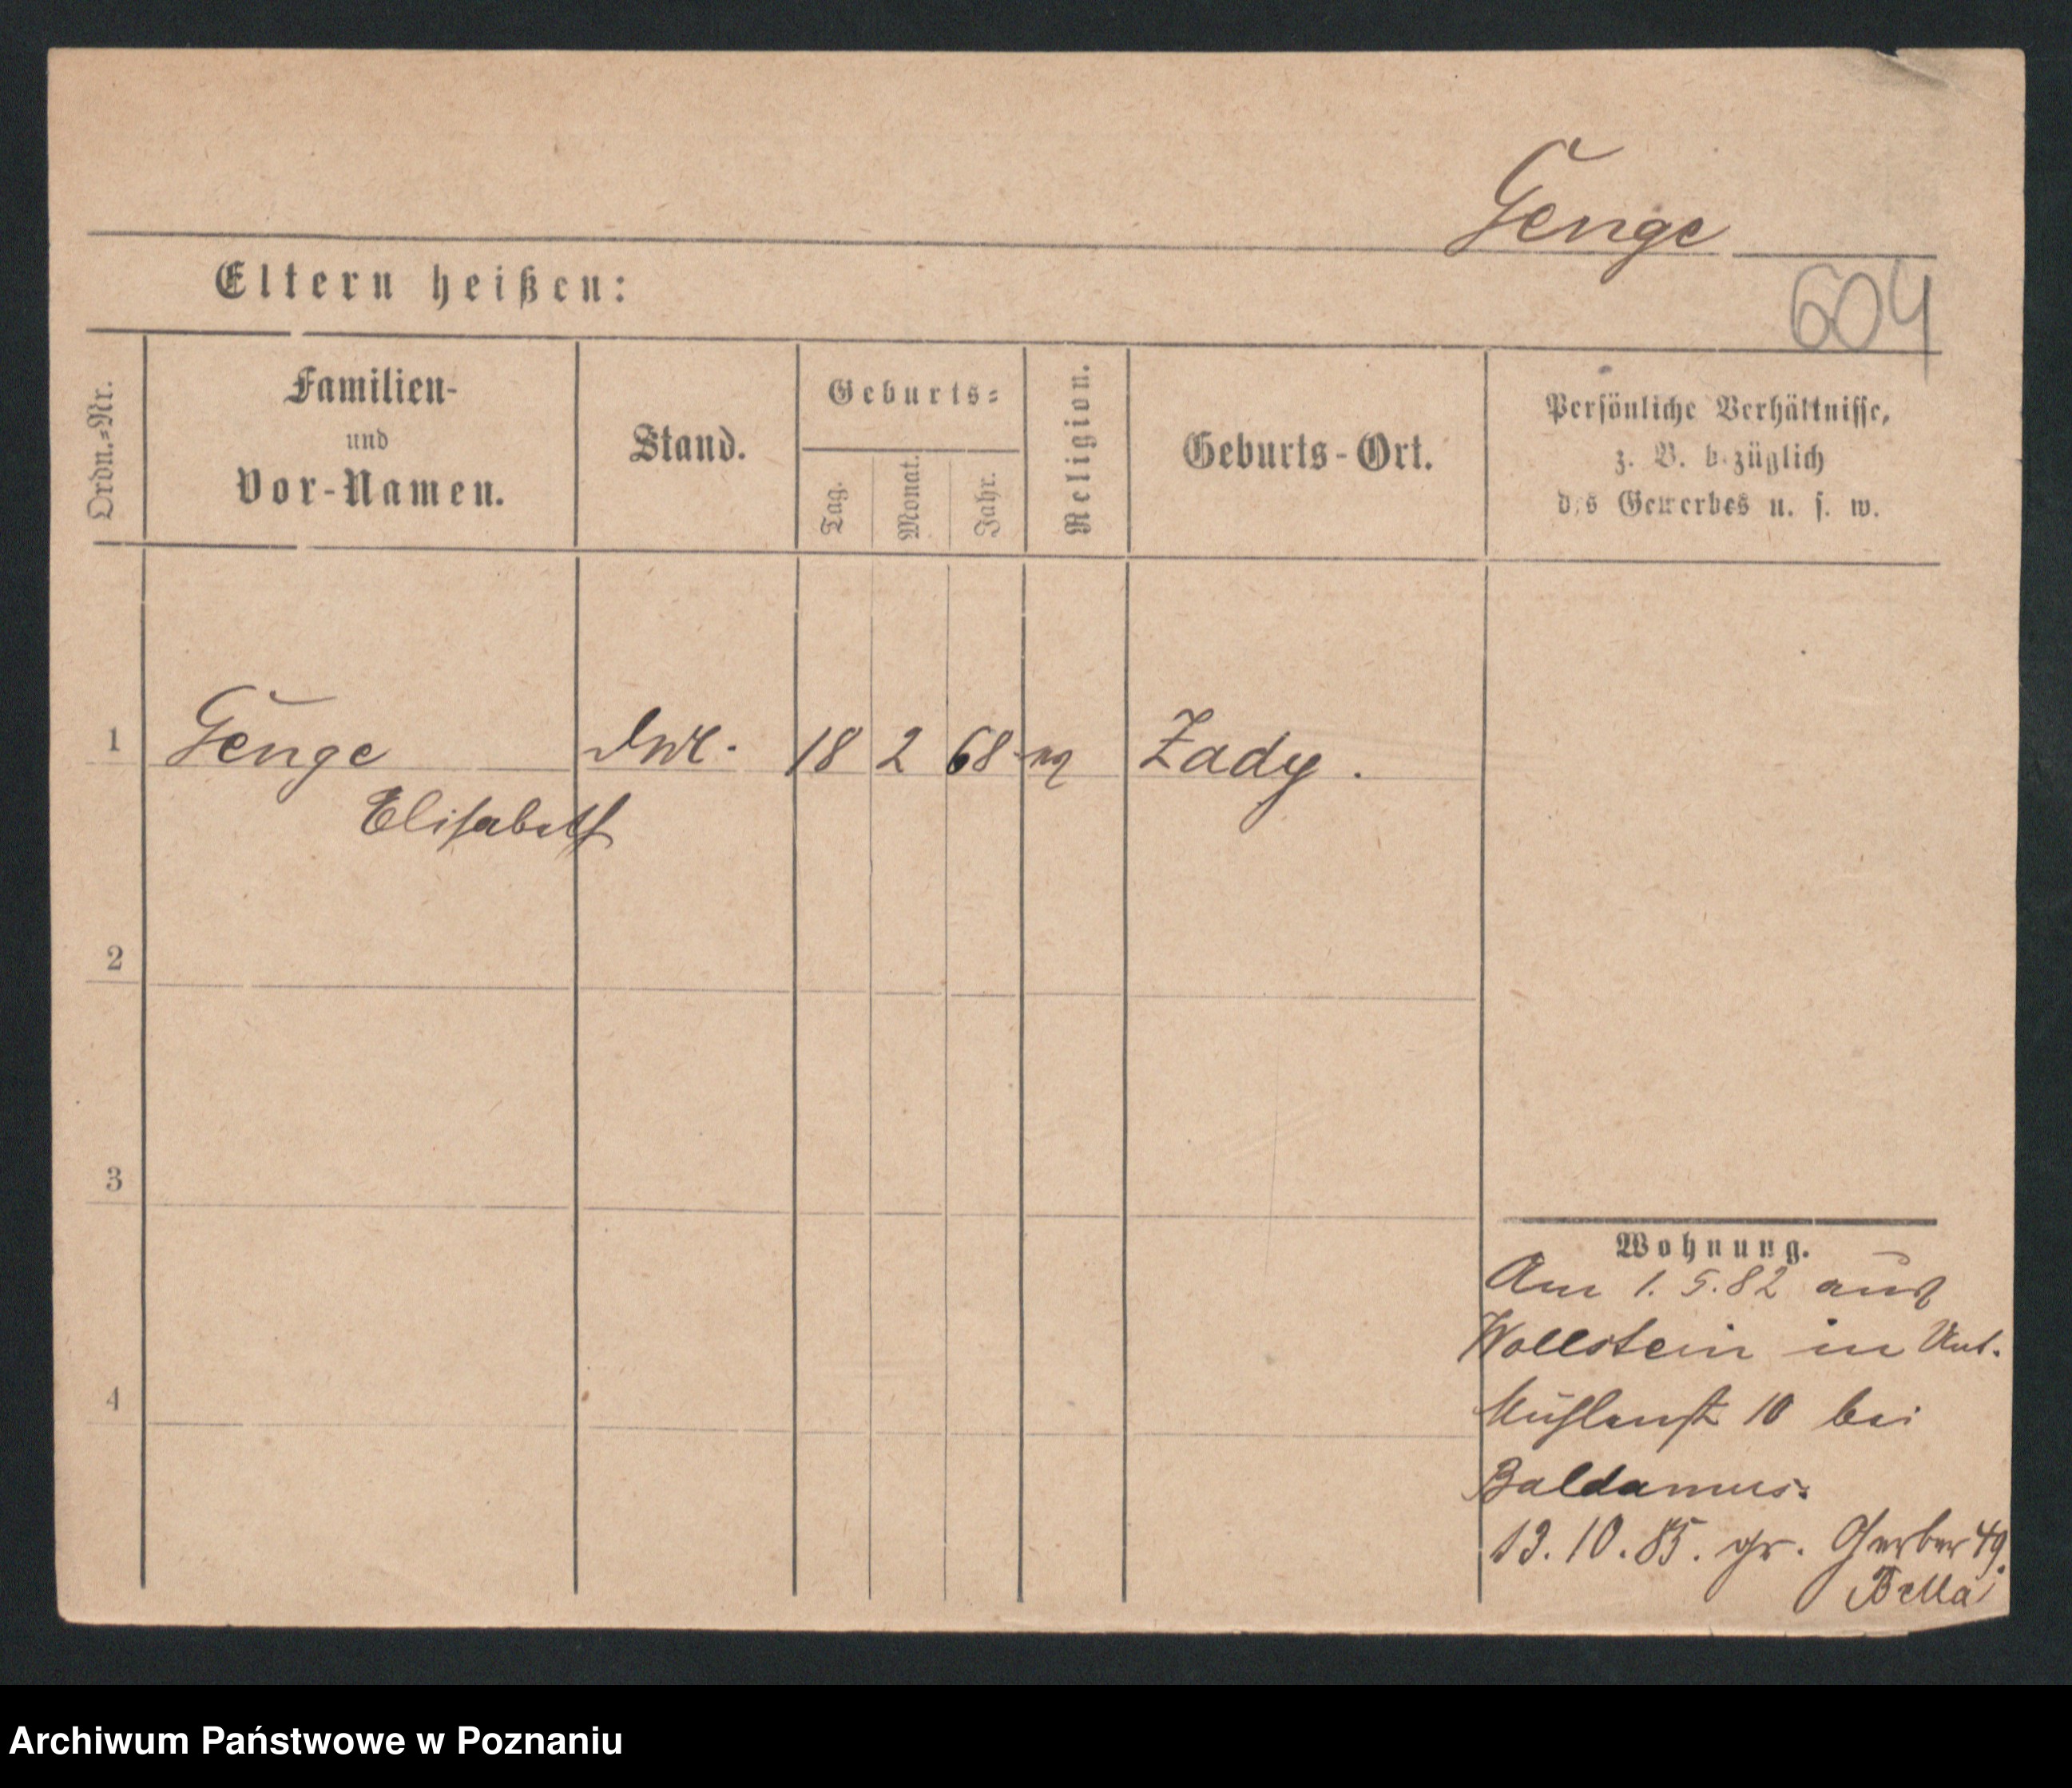 Genge
604
Eltern heißen:
Ordn.=Nr.
Familien-
und
Vor-Namen.
Stand.
Geburts=
Tag.
Monat.
Jahr.
Religion.
Geburts-Ort.
Persönliche Verhältnisse,
z. B. bezüglich
des Gewerbes u. s. w.
1 Genge 18 2 68 Zady.
Elisabeth
2
3
4
Wohnung.
Am 1. 5. 82 aus
Wollstein in Unt.
Mühlenst 10 bei
Baldamus.
13. 10. 85. gr. Gerber 49.
Archiwum Państwowe w Poznaniu